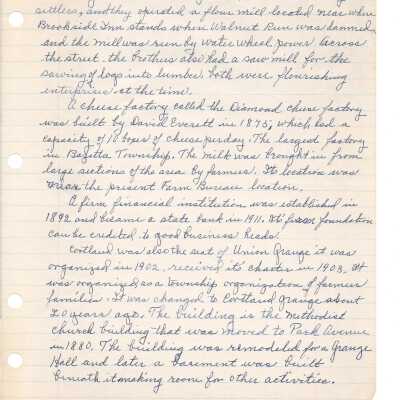 settlers, and they operated a flour mill located near where
Brookside Inn stands when Walnut Run was dammed
and the mill was run by water wheel power. Across
the street the brothers also had a saw mill for the
sawing of logs into lumber, both were flourishing
enterprises at the time.
A cheese factory called the Diamond cheese factory
was built by David Everett in 1875, which had a
capacity of 10 boxes of cheese per day. The largest factory
in Bazetta Township. The milk was brought in from
large sections of the area by farmers. Its location was
near the present Farm Bureau location.
A firm financial institution was established in
1892 and became a state bank in 1911. It's foundation
can be credited to good business heads.
Cortland was also the seat of Union Grange it was
organized in 1902, received it's charter in 1903. It
was organized as a township organization of farmers
families. It was changed to Cortland Grange about
20 years ago. The building is the Methodist
church building that was moved to Park Avenue
in 1880. The building was remodeled for a Grange
Hall and later a basement was built
beneath it making room for other activities.